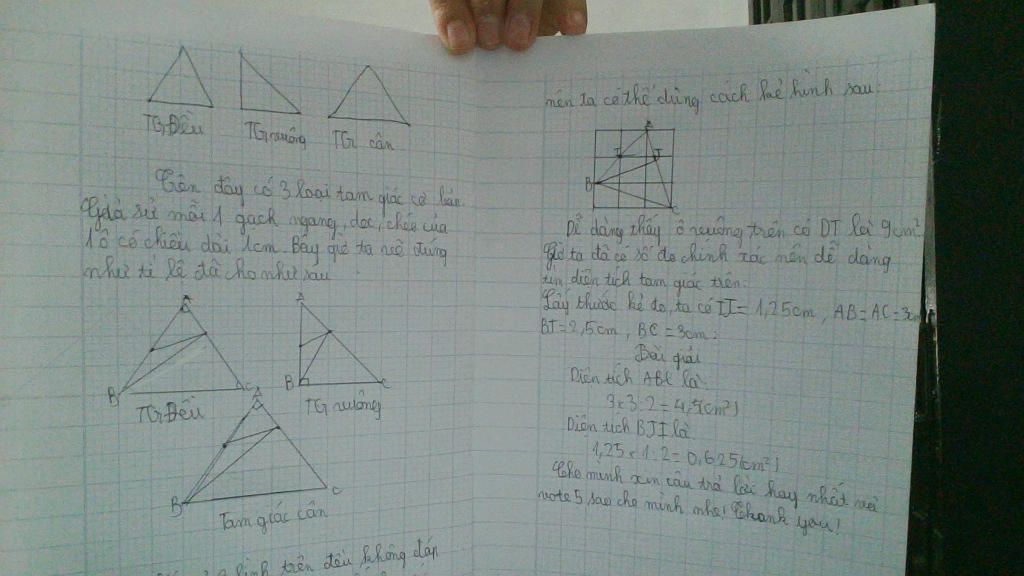 TG Đều
TG vuông
TG cân
Trên đây có 3 loại tam giác cơ bản.
Giả sử mỗi 1 gạch ngang, dọc, chéo của
1 ô có chiều dài 1cm. Bây giờ ta vẽ đúng
như tỉ lệ đã cho như sau
A
B
C
TG Đều
A
B
C
TG vuông
A
B
C
Tam giác cân
hình trên đều không đáp
nên ta có thể dùng cách kẻ hình sau:
A
I
J
B
C
Dễ dàng thấy ô vuông trên có DT là 9cm²
Giờ ta đã có số đo chính xác nên dễ dàng
tìm diện tích tam giác trên.
Lấy thước kẻ đo, ta có IJ = 1,25cm, AB = AC = 3cm
BJ = 2,5cm, BC = 3cm.
Bài giải
Diện tích ABC là:
3 x 3 : 2 = 4,5(cm²)
Diện tích BJI là
1,25 x 1 : 2 = 0,625(cm²)
Cho mình xin câu trả lời hay nhất và
vote 5 sao cho mình nhé! Thank you!